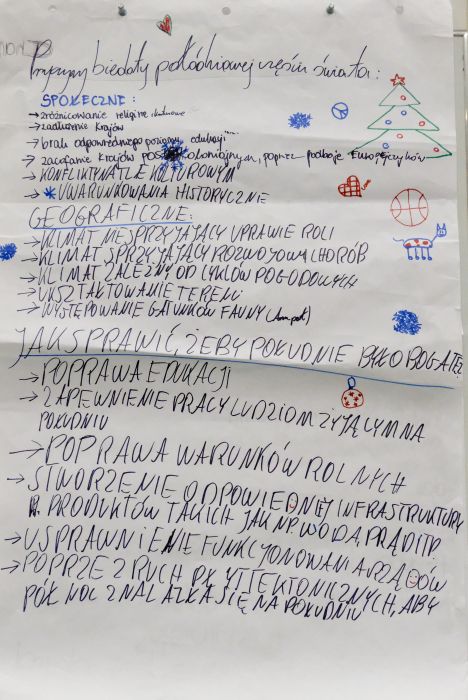 Przyczyny biedoty południowej części świata:
SPOŁECZNE:
→ zróżnicowanie religijne i kulturowe
→ zadłużenie krajów
→ brak odpowiedniego poziomu edukacji
→ zacofanie krajów postkolonialnych, poprzez podboje Europejczyków
→ KONFLIKTY NA TLE KULTUROWYM
→ UWARUNKOWANIA HISTORYCZNE
GEOGRAFICZNE:
→ KLIMAT NIESPRZYJAJĄCY UPRAWIE ROLI
→ KLIMAT SPRZYJAJĄCY ROZWOJOWI CHORÓB
→ KLIMAT ZALEŻNY OD CYKLÓW POGODOWYCH
→ UKSZTAŁTOWANIE TERENU
→ WYSTĘPOWANIE GATUNKÓW FAUNY
JAK SPRAWIĆ, ŻEBY POŁUDNIE BYŁO BOGATE?
→ POPRAWA EDUKACJI
→ ZAPEWNIENIE PRACY LUDZIOM ŻYJĄCYM NA
POŁUDNIU
→ POPRAWA WARUNKÓW ROLNYCH
→ STWORZENIE ODPOWIEDNIEJ INFRASTRUKTURY
PRODUKTÓW TAKICH JAK NP. WODA, PRĄD ITP.
→ USPRAWNIENIE FUNKCJONOWANIA RZĄDÓW
→ POPRZEZ RUCH PŁYT TEKTONICZNYCH, ABY
PÓŁNOC ZNALAZŁA SIĘ NA POŁUDNIU